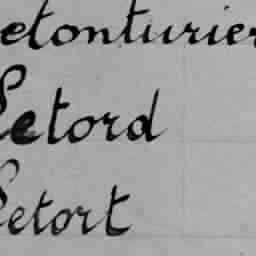 etonturier
Letord
Letort